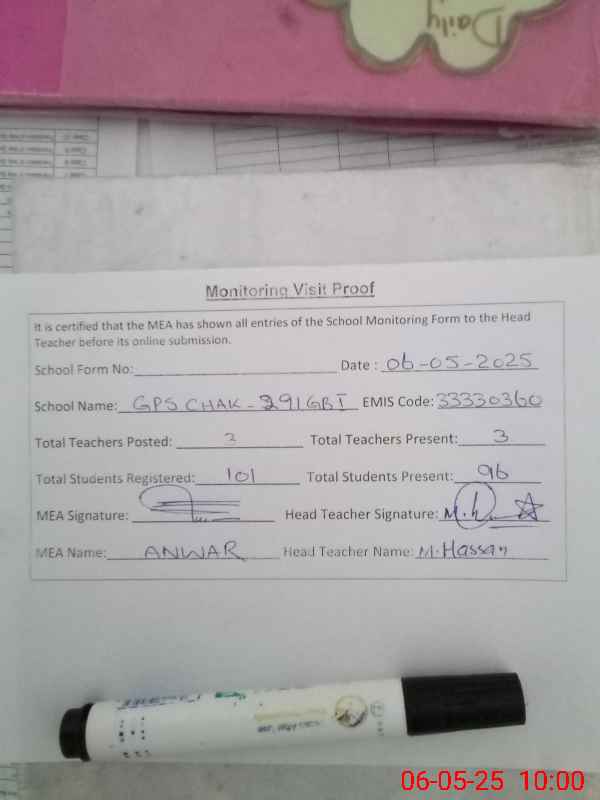 Daily
Monitoring Visit Proof
It is certified that the MEA has shown all entries of the School Monitoring Form to the Head
Teacher before its online submission.
School Form No: Date : 06-05-2025
School Name: GPS CHAK - 291GBI EMIS Code: 33330360
Total Teachers Posted: 3 Total Teachers Present: 3
Total Students Registered: 101 Total Students Present: 96
MEA Signature: Head Teacher Signature: M.h
MEA Name: ANWAR Head Teacher Name: M.Hassan
06-05-25 10:00